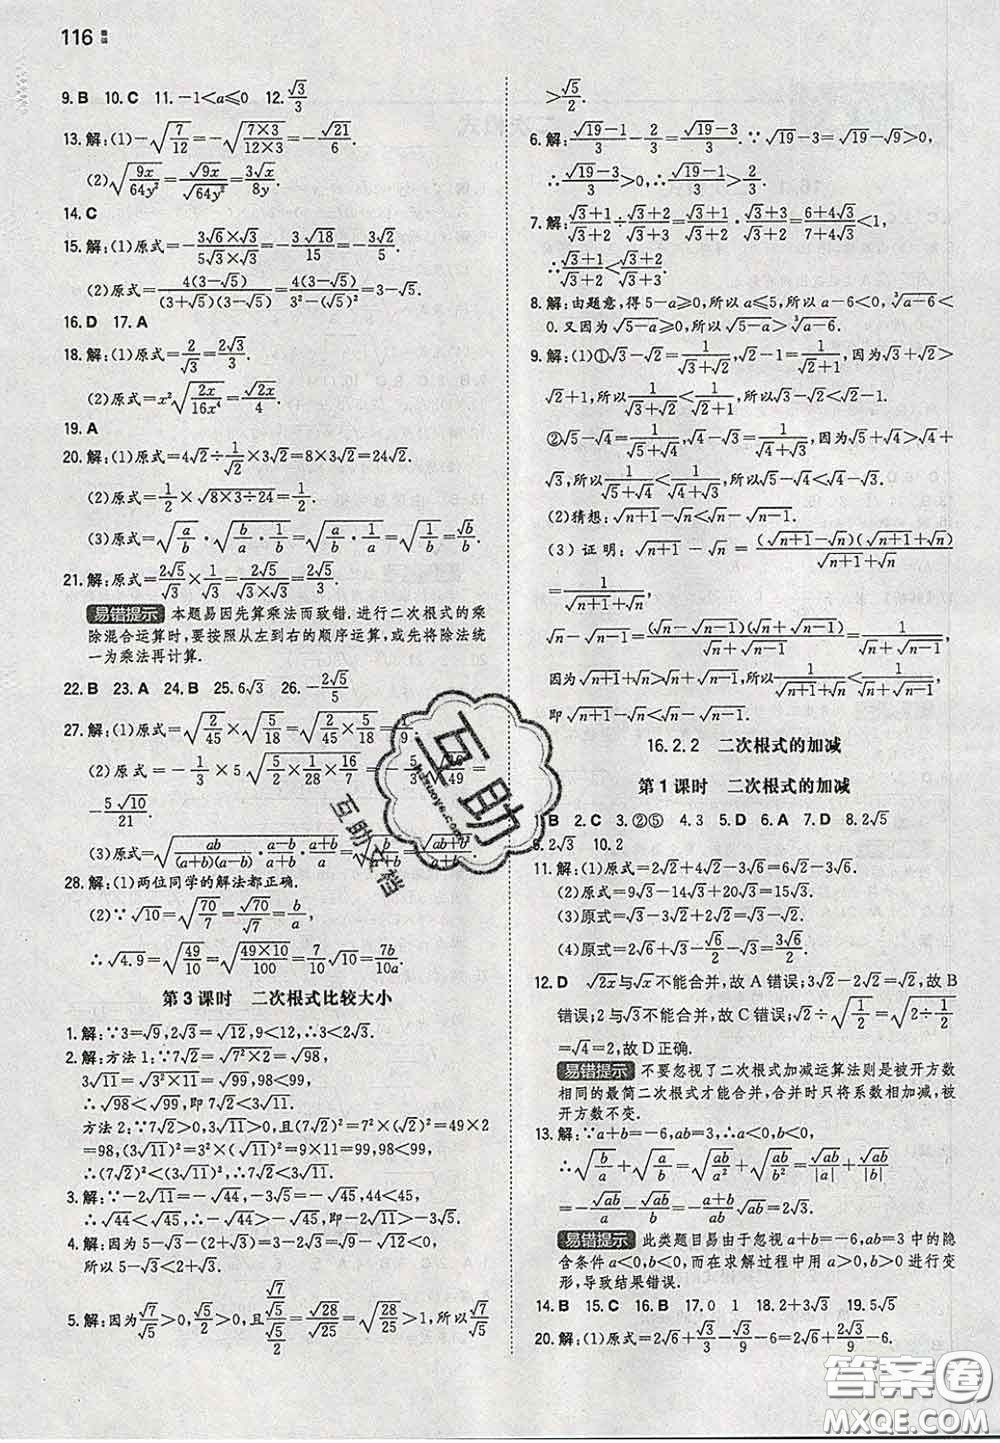 116
9. B  10. C  11. -1<a≤0  12. √3/3
13. 解:(1)-√(7/12)=-√((7×3)/(12×3))=-√21/6.
(2)√(9x/64y²)=√9x/√64y²=3√x/8y.
14. C
15. 解:(1)原式=-(3√6×√3)/(5√3×√3)=-3√18/15=-3√2/5.
(2)原式=4(3-√5)/((3+√5)(3-√5))=4(3-√5)/(3²-(√5)²)=3-√5.
16. D  17. A
18. 解:(1)原式=2/√3=2√3/3.
(2)原式=x²√(2x/16x⁴)=√2x/4.
19. A
20. 解:(1)原式=4√2÷1/√2×3√2=8×3√2=24√2.
(2)原式=1/2×√(8×3÷24)=1/2.
(3)原式=√(a/b)·√(b/a·1/b)=√(a/b·1/a)=√(1/b)=√b/b.
21. 解:原式=2√5/√3×1/√3=2√5/(√3×√3)=2√5/3.
易错提示 本题易因先算乘法而致错.进行二次根式的乘
除混合运算时,要按照从左到右的顺序运算,或先将除法统
一为乘法再计算.
22. B  23. A  24. B  25. 6√3  26. -2√5/5
27. 解:(1)原式=√(2/45)×√(5/18)=√(2/45×5/18)=
(2)原式=-5/3×2√(5/28×16/7)=
-5√10/21.
(3)原式=√(ab/((a+b)(a-b))·(a-b)/a·(a+b)/a)=
28. 解:(1)两位同学的解法都正确.
(2)∵√10=√(70/7)=√70/√7=b/a,
∴√4.9=√(49/10)=√((49×10)/100)=7/10√10=7b/10a.
第 3 课时  二次根式比较大小
1. 解:∵3=√9,2√3=√12,9<12,∴3<2√3.
2. 解:方法1:∵7√2=√(7²×2)=√98,
3√11=√(3²×11)=√99,
∴√98<√99,即7√2<3√11.
方法2:∵7√2>0,3√11>0,且(7√2)²=7²×(√2)²=49×2
=98,(3√11)²=3²×(√11)²=9×11=99,98<99,
∴(7√2)²<(3√11)²,∴7√2<3√11.
3. 解:∵-2√11=-√44,-3√5=-√45,
∴√44<√45,∴-√44>-√45,即-2√11>-3√5.
4. 解:因为5-√3-(2+√3)=3-2√3=√9-√12<0,
所以5-√3<2+√3.
5. 解:因为√7/√5>0,√5/2>0,且(√7/√5)/(√5/2)=√28/√25=√(28/25)>1,所以√7/√5
>√5/2.
6. 解:(√19-1)/3-2/3=(√19-3)/3.∵√19-3=√19-√9>0,
∴(√19-3)/3>0,∴(√19-1)/3>2/3.
7. 解:(√3+1)/(√3+2)÷(√3+2)/(√3+3)=(√3+1)/(√3+2)·(√3+3)/(√3+2)=(6+4√3)/(7+4√3)<1,
∴(√3+1)/(√3+2)<(√3+2)/(√3+3).
8. 解:由题意,得5-a≥0,所以a≤5,所以a-6<0,∛(a-6)<
0.又因为√(5-a)≥0,所以√(5-a)>∛(a-6).
9. 解:(1)①√3-√2=1/(√3+√2),√2-1=1/(√2+1),因为√3+√2>
√2+1,所以1/(√3+√2)<1/(√2+1),所以√3-√2<√2-1.
②√5-√4=1/(√5+√4),√4-√3=1/(√4+√3),因为√5+√4>√4+
√3,所以1/(√5+√4)<1/(√4+√3),所以√5-√4<√4-√3.
(2)猜想:√(n+1)-√n<√n-√(n-1).
(3)证明:√(n+1)-√n=(√(n+1)-√n)(√(n+1)+√n)/(√(n+1)+√n)
=1/(√(n+1)+√n),
√n-√(n-1)=(√n-√(n-1))(√n+√(n-1))/(√n+√(n-1))=1/(√n+√(n-1)),
因为√(n+1)+√n>√n+√(n-1),所以1/(√(n+1)+√n)<1/(√n+√(n-1)),
即√(n+1)-√n<√n-√(n-1).
16.2.2  二次根式的加减
第 1 课时  二次根式的加减
1. B  2. C  3. ②⑤  4. 3  5. D  6. A  7. D  8. 2√5
9. 2√3  10. 2
11. 解:(1)原式=2√2+4√2-3√3=6√2-3√3.
(2)原式=9√3-14√3+20√3=15√3.
(3)原式=√3-3√2+2√3+√2=3√3-2√2.
(4)原式=2√6+√6/2-√3-√6=3√6/2-√3.
12. D  √2x与√x不能合并,故A错误;3√2-2√2=√2,故B
错误;2与√3不能合并,故C错误;√2÷√(1/2)=√(2÷1/2)=
√4=2,故D正确.
易错提示 不要忽视了二次根式加减运算法则是被开方数
相同的最简二次根式才能合并,合并时只将系数相加减,被
开方数不变.
13. 解:∵a+b=-6,ab=3,∴a<0,b<0,
∴√(b/a)+√(a/b)=√(ab/a²)+√(ab/b²)=√ab/|a|+√ab/|b|
=-√ab/a-√ab/b=-(a+b)/ab√ab=2√3.
易错提示 此类题目易由于忽视a+b=-6,ab=3中的隐
含条件a<0,b<0,而在求解过程中对√(b/a)+√(a/b)进行变
形,导致结果错误.
14. B  15. C  16. B  17. 0  1  18. 2+3√3  19. 5√5
20. 解:(1)原式=2√6+√3/3-√3/9-6=2√6+2√3/9-6.
互助
互助文档
答案圈
MXQE.COM